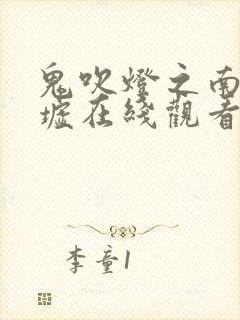 鬼吹燈之南
墟在綫觀看
李童1